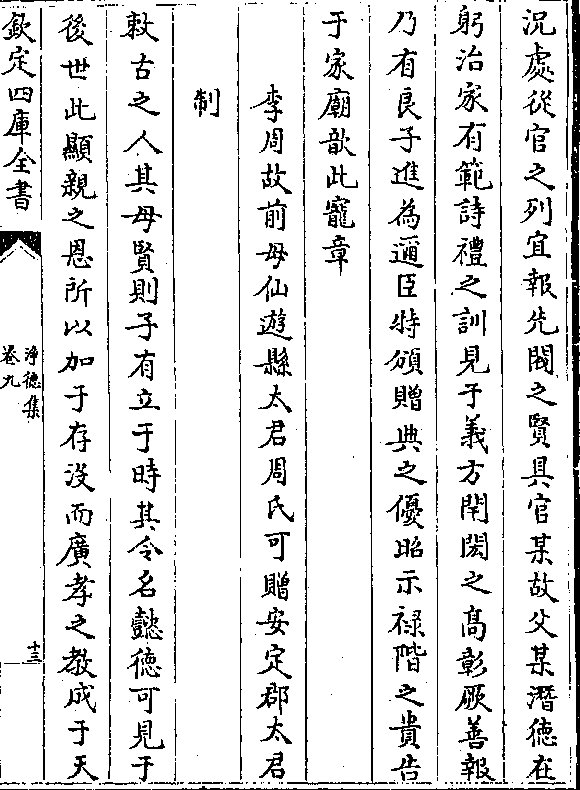 況處從官之列宜報先閥之賢具官某故父某潛徳在
躬治家有範詩禮之訓見于義方閈閎之髙彰厥善報
乃有良子進為邇臣特頒贈典之優昭示禄階之貴告
于家廟歆此寵章
李周故前母仙遊縣太君周氏可贈安定郡太君
制
敕古之人其母賢則子有立于時其令名懿徳可見于
後世此顯親之恩所以加于存没而廣孝之教成于天
欽定四庫全書
淨徳集
卷九
十三